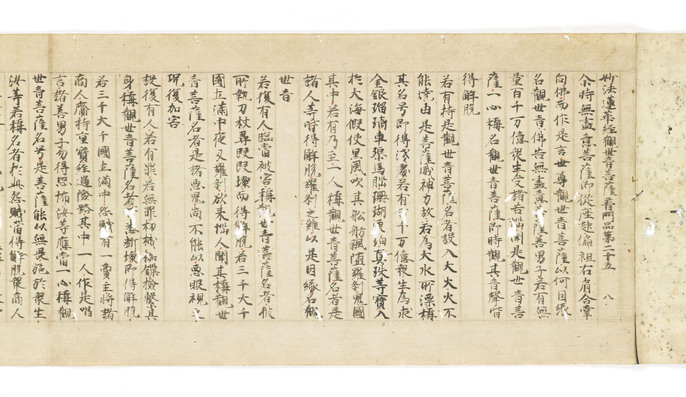 妙法蓮華經觀世音菩薩普門品第二十五 八
尒時無盡意菩薩即從座起偏袒右肩合掌
向佛而作是言世尊觀世音菩薩以何因緣
名觀世音佛告無盡意菩薩善男子若有無
量百千万億衆生受諸苦惱聞是觀世音菩
薩一心稱名觀世音菩薩即時觀其音聲皆
得解脫
若有持是觀世音菩薩名者設入大火火不
能燒由是菩薩威神力故若為大水所漂稱
其名号即得淺處若有百千万億衆生為求
金銀瑠璃車𤦲馬瑙珊瑚虎珀真珠等寶入
於大海假使黑風吹其舩舫飄墮羅剎鬼國
其中若有乃至一人稱觀世音菩薩名者是
諸人等皆得解脫羅剎之難以是因緣名觀
世音
若復有人臨當被害稱觀世音菩薩名者彼
所執刀杖尋段段壞而得解脫若三千大千
國土滿中夜叉羅剎欲來惱人聞其稱觀世
音菩薩名者是諸惡鬼尚不能以惡眼視之
況復加害
設復有人若有罪若無罪杻械枷鎖檢繫其
身稱觀世音菩薩名者皆悉斷壞即得解脫
若三千大千國土滿中怨賊有一商主將諸
商人齎持重寶經過險路其中一人作是唱
言諸善男子勿得恐怖汝等應當一心稱觀
世音菩薩名号是菩薩能以無畏施於衆生
汝等若稱名者於此怨賊當得解脫衆商人